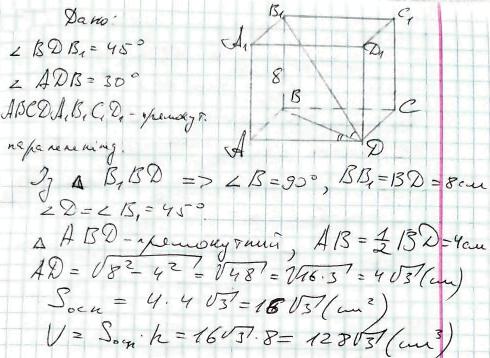 Дано:
∠ BDB₁ = 45°
∠ ADB = 30°
ABCDA₁B₁C₁D₁ - прямокут.
паралелепіпед.
B₁ C₁
A₁ D₁
8
B C
A D
Із △ B₁BD => ∠B = 90°, BB₁ = BD = 8 см
∠D = ∠B₁ = 45°
△ ABD - прямокутний, AB = ½ BD = 4 см
AD = √(8² - 4²) = √48 = √(16·3) = 4√3 (см)
Sосн = 4·4√3 = 16√3 (см²)
V = Sосн·h = 16√3·8 = 128√3 (см³)